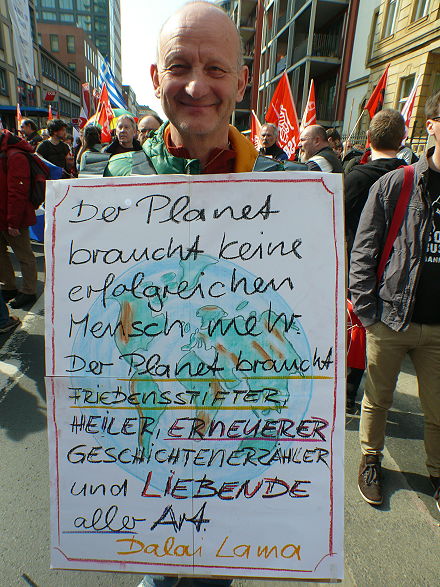 Der Planet
braucht keine
erfolgreichen
Mensch mehr
Der Planet braucht
FRIEDENSSTIFTER,
HEILER, ERNEUERER
GESCHICHTENERZÄHLER
und LIEBENDE
aller Art
Dalai Lama